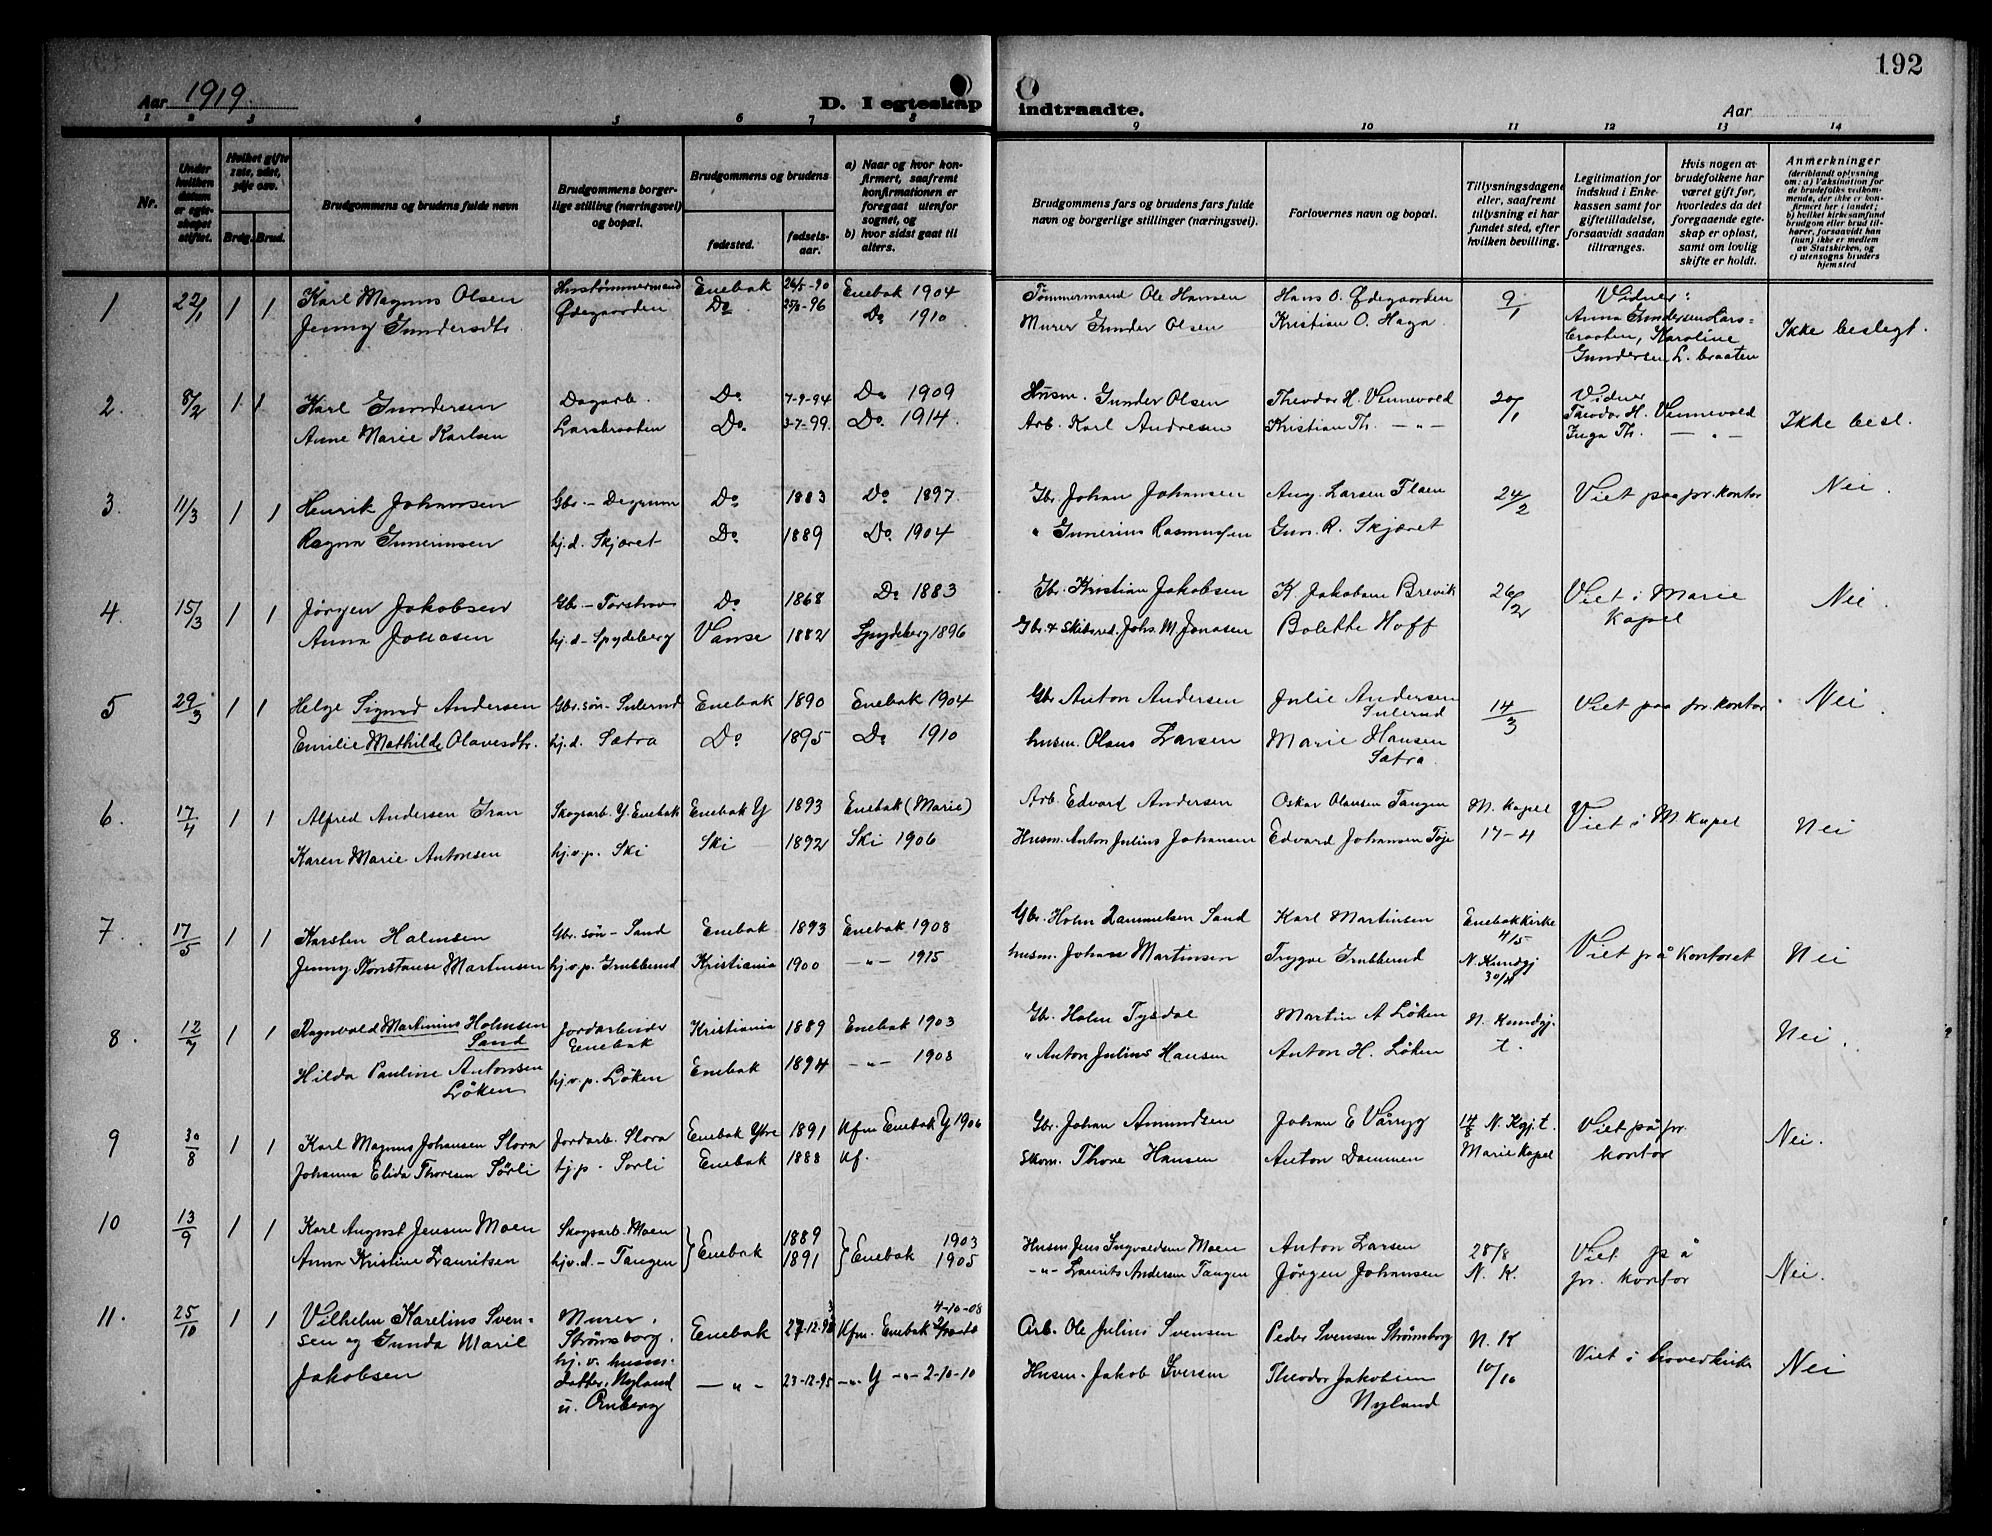 192
Aar 1919. D. I egteskap indtraadte. Aar
1 2 3 4 5 6 7 8 9 10 11 12 13 14
Nr.
Under hvilken datum er egteskapet stiftet.
Hvilket gifte 1ste, 2det, 3dje osv.
Brdg. Brud.
Brudgommens og brudens fulde navn
Brudgommens borgerlige stilling (næringsvei) og bopæl.
Brudgommens og brudens
fødested.
fødselsaar.
a) Naar og hvor konfirmert, saafremt konfirmationen er foregaat utenfor sognet, og
b) hvor sidst gaat til alters.
Brudgommens fars og brudens fars fulde navn og borgerlige stillinger (næringsvei).
Forlovernes navn og bopæl.
Tillysningsdagene eller, saafremt tillysning ei har fundet sted, efter hvilken bevilling.
Legitimation for indskud i Enkekassen samt for giftetilladelse, forsaavidt saadan tiltrænges.
Hvis nogen av brudefolkene har været gift før, hvorledes da det foregaaende egteskap er opløst, samt om lovlig skifte er holdt.
Anmerkninger (deriblandt oplysning om: a) Vaksination for de brudefolks vedkommende, der ikke er konfirmert her i landet; b) hvilket kirkesamfund brudgom eller brud tilhører, forsaavidt han (hun) ikke er medlem av Statskirken, og c) utensogns bruders hjemsted
1 22/1 1 1 Karl Magnus Olsen Hustømmermand Enebak 26/5-90 Enebak 1904 Tømmermand Ole Hansen Hans O. Ødegaarden 9/1 Vidner:
Jenny Gundersdtr. Ødegaarden Do 96 Do 1910 Murer Gunder Olsen Kristian O. Haga Anna Gundersen Lars=
braaten, Karoline Ikke beslegt.
Gundersen L. braaten
2. 8/2 1 1 Karl Gundersen Dagarb. Do 7-9-94 Do 1909 Husm. Gunder Olsen Theodor H. Vennevold 20/1 Vidner
Anne Marie Karlsen Larsbraaten Do. 3-7-99. Do. 1914. Arb. Karl Andresen Kristian Th. -"- Theodor H. Vennevold Ikke besl.
Inga Th. -"-
3. 11/3 1 1 Henrik Johansen Gbr.- Do 1883 Do 1897. Gbr. Johan Johansen Aug. Larsen 24/2 Viet paa pr. kontor Nei.
Ragna Gunerinsen hj.d. Skjæret Do 1889 Do. 1904 " Gunerius Rasmussen Gun. R. Skjæret
4. 15/3 1 1 Jørgen Jakobsen Gbr.- Do 1868 Do 1883 Gbr. Kristian Jakobsen K Jakobsen Brevik 26/2 Viet i Marie Nei.
Anna Jonasen hj.d- Spydeberg Vanse 1882 Spydeberg 1896 Gbr. & Skibsred. Johs. M. Jonasen Bolette Hoff Kapel
5 29/3 1 1 Helge Sigurd Andersen Gbr.søn- Sulerud Enebak 1890 Enebak 1904 Gbr Anton Andersen Julie Andersen Sulerud 14/3 Viet paa pr. kontor. Nei
Emilie Mathilde Olavesdtr. hj.d. Sætra Do 1895 Do 1910 husm. Olaus Larsen Marie Hansen Sætra.
6. 17/4 1 1 Alfred Andersen Skogsarb. Y. Enebak Enebak Y 1893 Enebak (Marie) Arb. Edvard Andersen Oskar Olausen Tangen M. Kapel Viet i M. Kapel Nei
Karen Marie Antonsen hj.v.p. Ski Ski 1892 Ski 1906 Husm. Anton Julius Johansen Edvard Johansen 17-4
7. 17/5 1 1 Karsten Holmsen Gbr.søn- Sand Enebak 1893 Enebak 1908 Gbr. Holm Sand Karl Martinsen Enebakkirke 4/5 Viet på kontoret Nei
Jenny Konstanse Martinsen hj.v.p. Grubberud Kristiania 1900 -"- 1915 husm. Johans Martinsen Trygve Grubberud N. Kundgj
8. 12/7 1 1 Ragnvald Martinius Holmsen Sand Jordarbeider Enebak Kristiania 1889 Enebak 1903 Gbr. Holm Martin A Løken N. Kundgj. t. Nei.
Hilda Pauline Antonsen Løken hj.v.p. Løken Enebak 1894 -"- 1908 " Anton Julius Hansen Anton H. Løken
9 30/8 1 1 Karl Magnus Johansen Slora Jordarb. Slora Enebak Ytre 1891 Kfm Enebak Y 1906 Gbr. Johan Amundsen Johan E Vårryg 14/8 N. Kgj. t. Viet på pr. Nei.
Johanna Elida Thoresen Sørli hj.p- Sørli Enebak 1888 Kf. Skom. Thore Hansen Anton Dammen Marie Kapel kontor
10 13/9 1 1 Karl August Jensen Moen Skogsarb. Moen } Enebak 1889 } Enebak 1903 Husm Jens Ingvaldsen Moen Anton Larsen 28/8 Viet på Nei.
Anna Kristine Lauritsen hjv.d.- Tangen 1891 1905 -"- Laurits Andersen Tangen Jørgen Johansen N. K. pr. kontor
11. 25/10 1 1 Vilhelm Karelius Sven- Murer. Enebak 27-12-93 Kfm. Enebak 4-10-08 Arb. Ole Julius Svensen Peder Svensen Strømsborg N. K Viet i hovedkirke Nei
sen og Gunda Marie Strømsborg. 10/10
Jakobsen hj.v. husm.- datter, Nyland -"- 23-12-95 -"- Y -"- 2-10-10 Husm. Jakob Iversen Theodor Jakobsen Nyland
u.